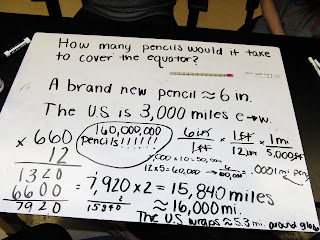 How many pencils would it take
to cover the equator?
A brand new pencil ≈ 6 in.
The US is 3,000 miles e→w.
160,000,000
pencils!!!!!!
× 660
12
1320
6600
7920
1 ft
1 ft
12 in
1 mi
5,000
12 x 5 = 60,000
.0001 mi
= 7,920 x 2 = 15,840 miles
15840
≈ 16,000 mi.
The US wraps ≈ 5.3 mi. around globe